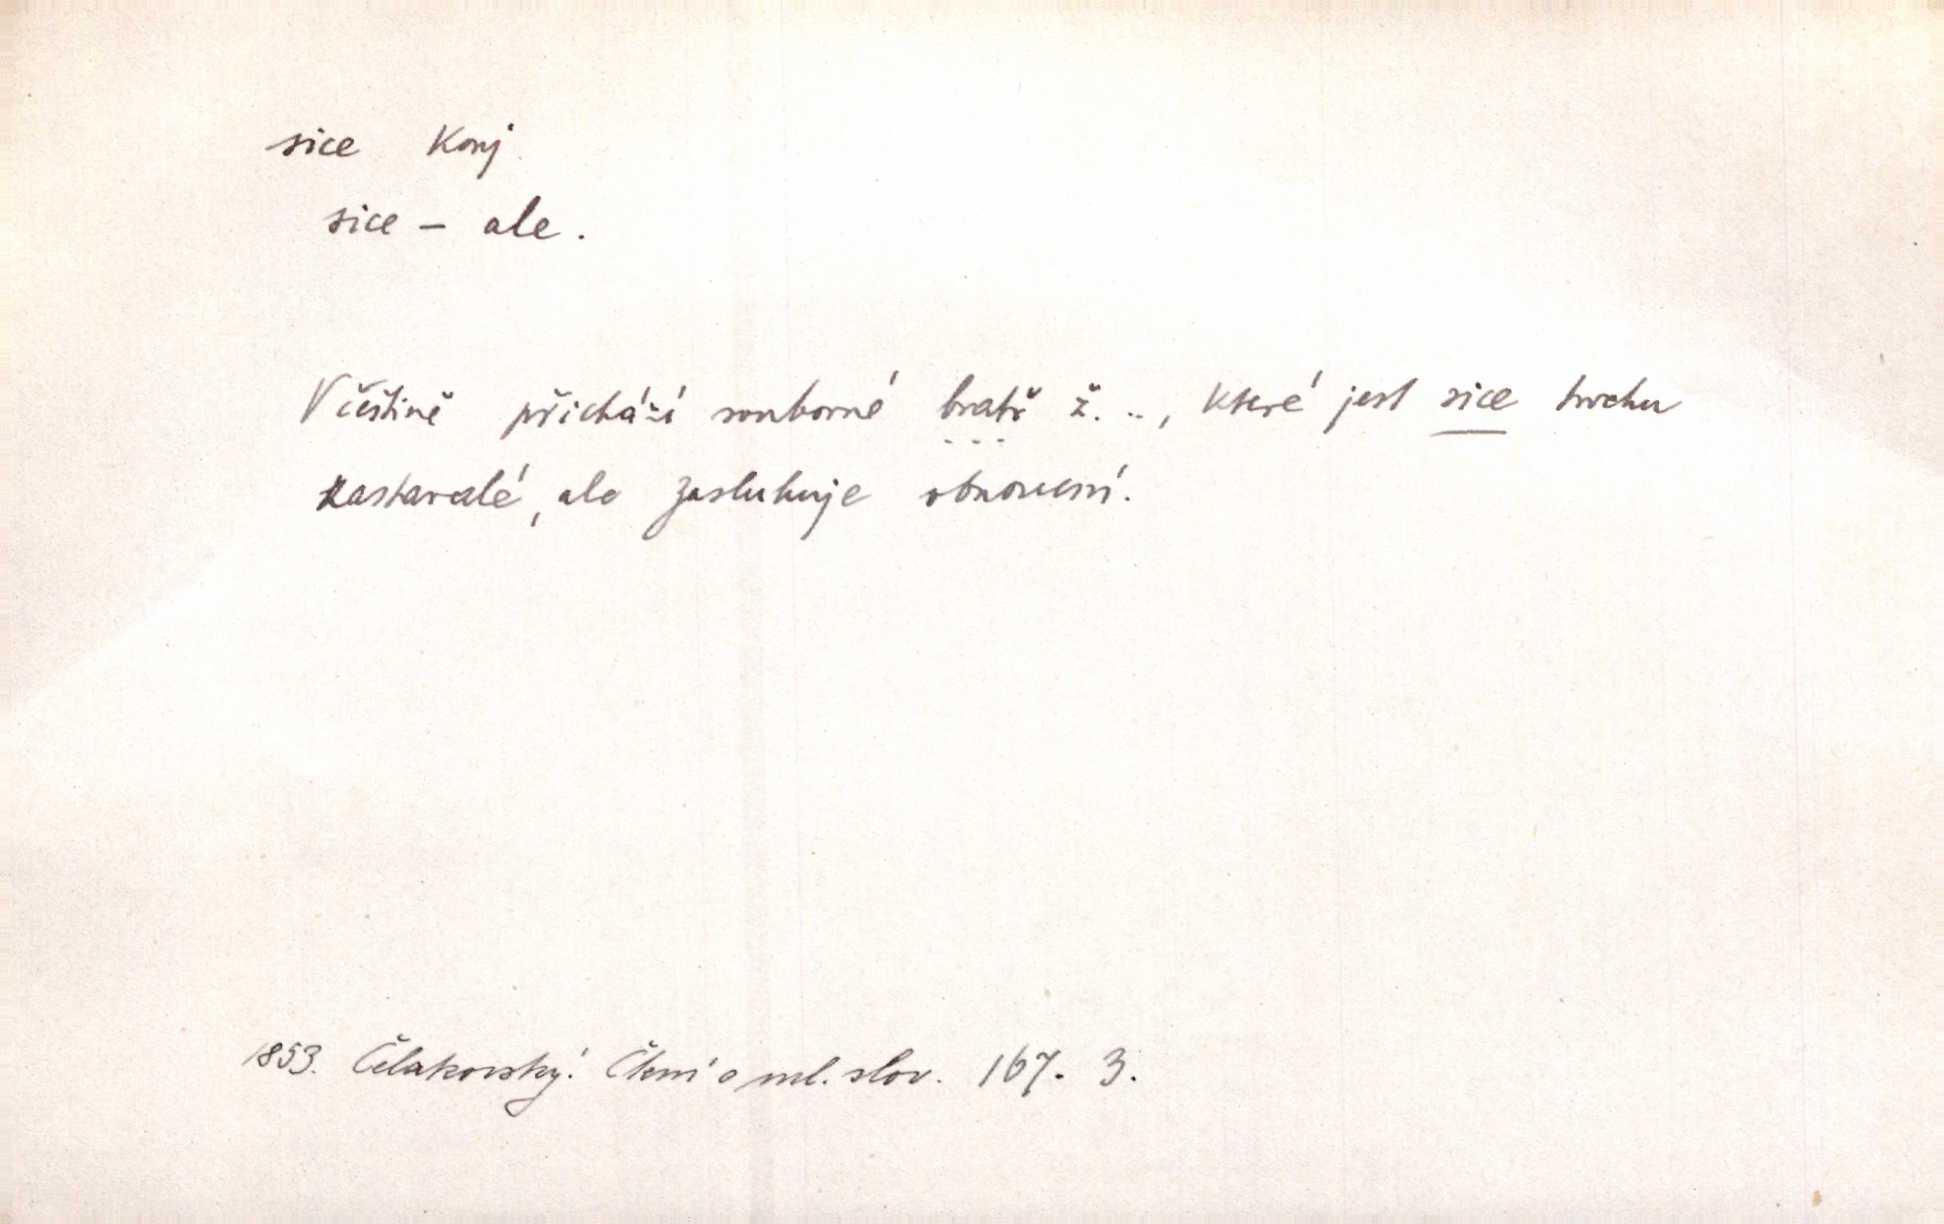 sice Konj
sice – ale.
V češtině přichází souborné bratř ž. .., které jest sice trochu
zastaralé, ale zasluhuje obnovení.
1853. Čelakovský. Čtení o ml. slov. 167. 3.